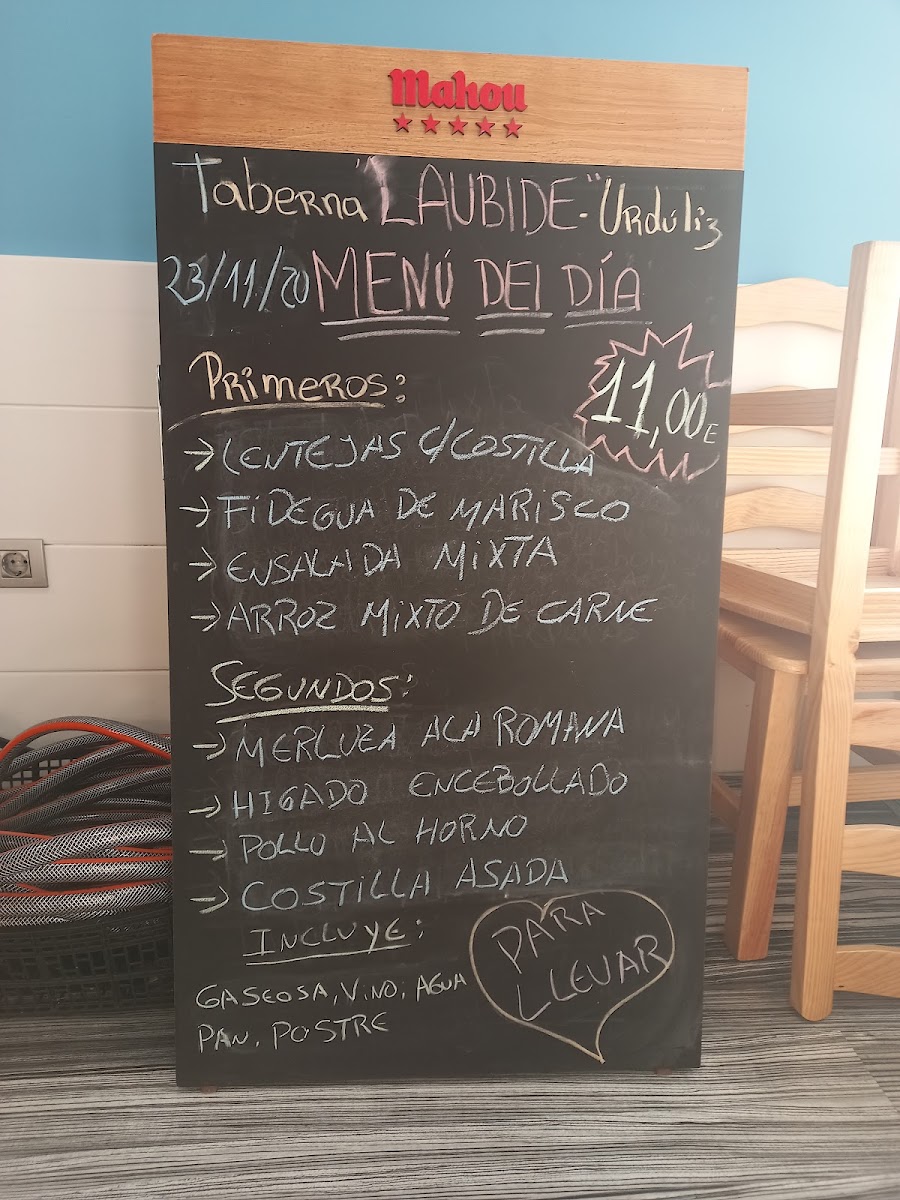 Mahou
Taberna "LAUBIDE"-Urdúliz
23/11/20 MENÚ DEL DÍA
11,00E
PRIMEROS:
→LENTEJAS C/COSTILLA
→FIDEGUA DE MARISCO
→ENSALADA MIXTA
→ARROZ MIXTO DE CARNE
SEGUNDOS:
→MERLUZA ALA ROMANA
→HIGADO ENCEBOLLADO
→POLLO AL HORNO
→COSTILLA ASADA
INCLUYE:
GASEOSA, VINO, AGUA
PAN, POSTRE
PARA
LLEVAR